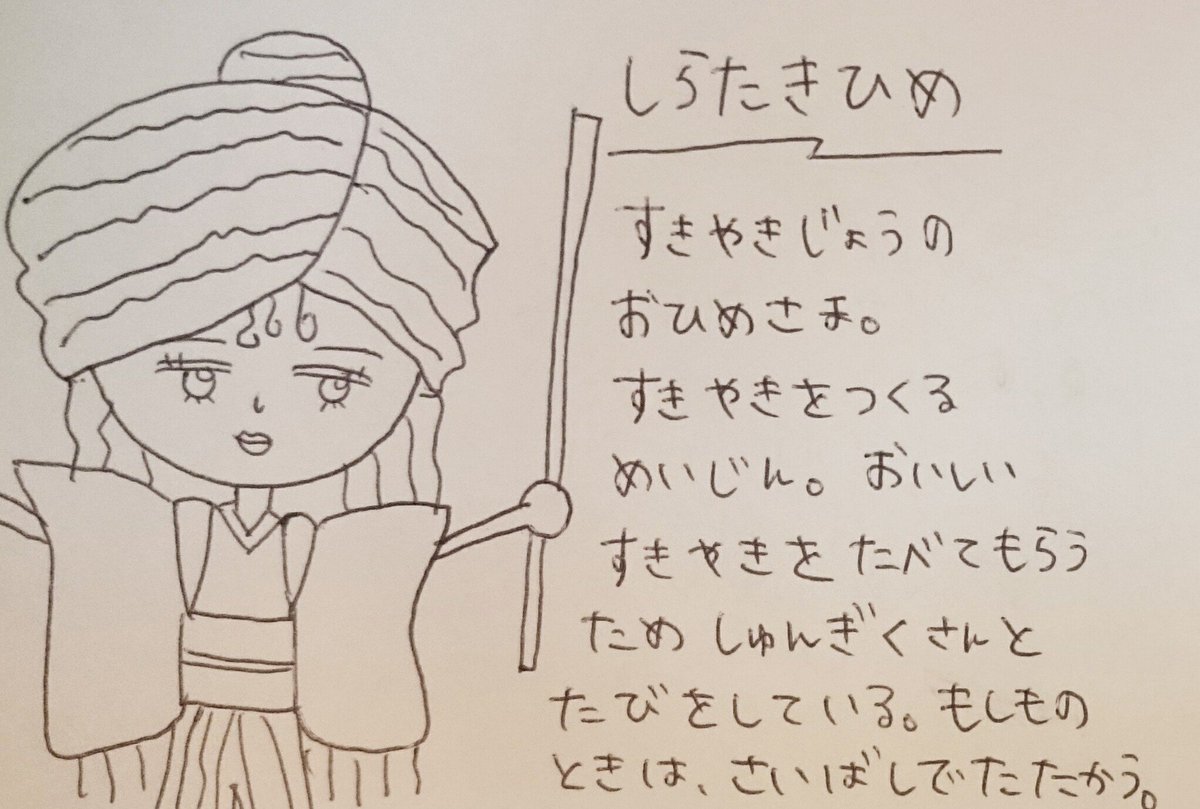 しらたきひめ
すきやきじょうの
おひめさま。
すきやきをつくる
めいじん。おいしい
すきやきをたべてもらう
ためしゅんぎくさんと
たびをしている。もしもの
ときは、さいばしでたたかう。